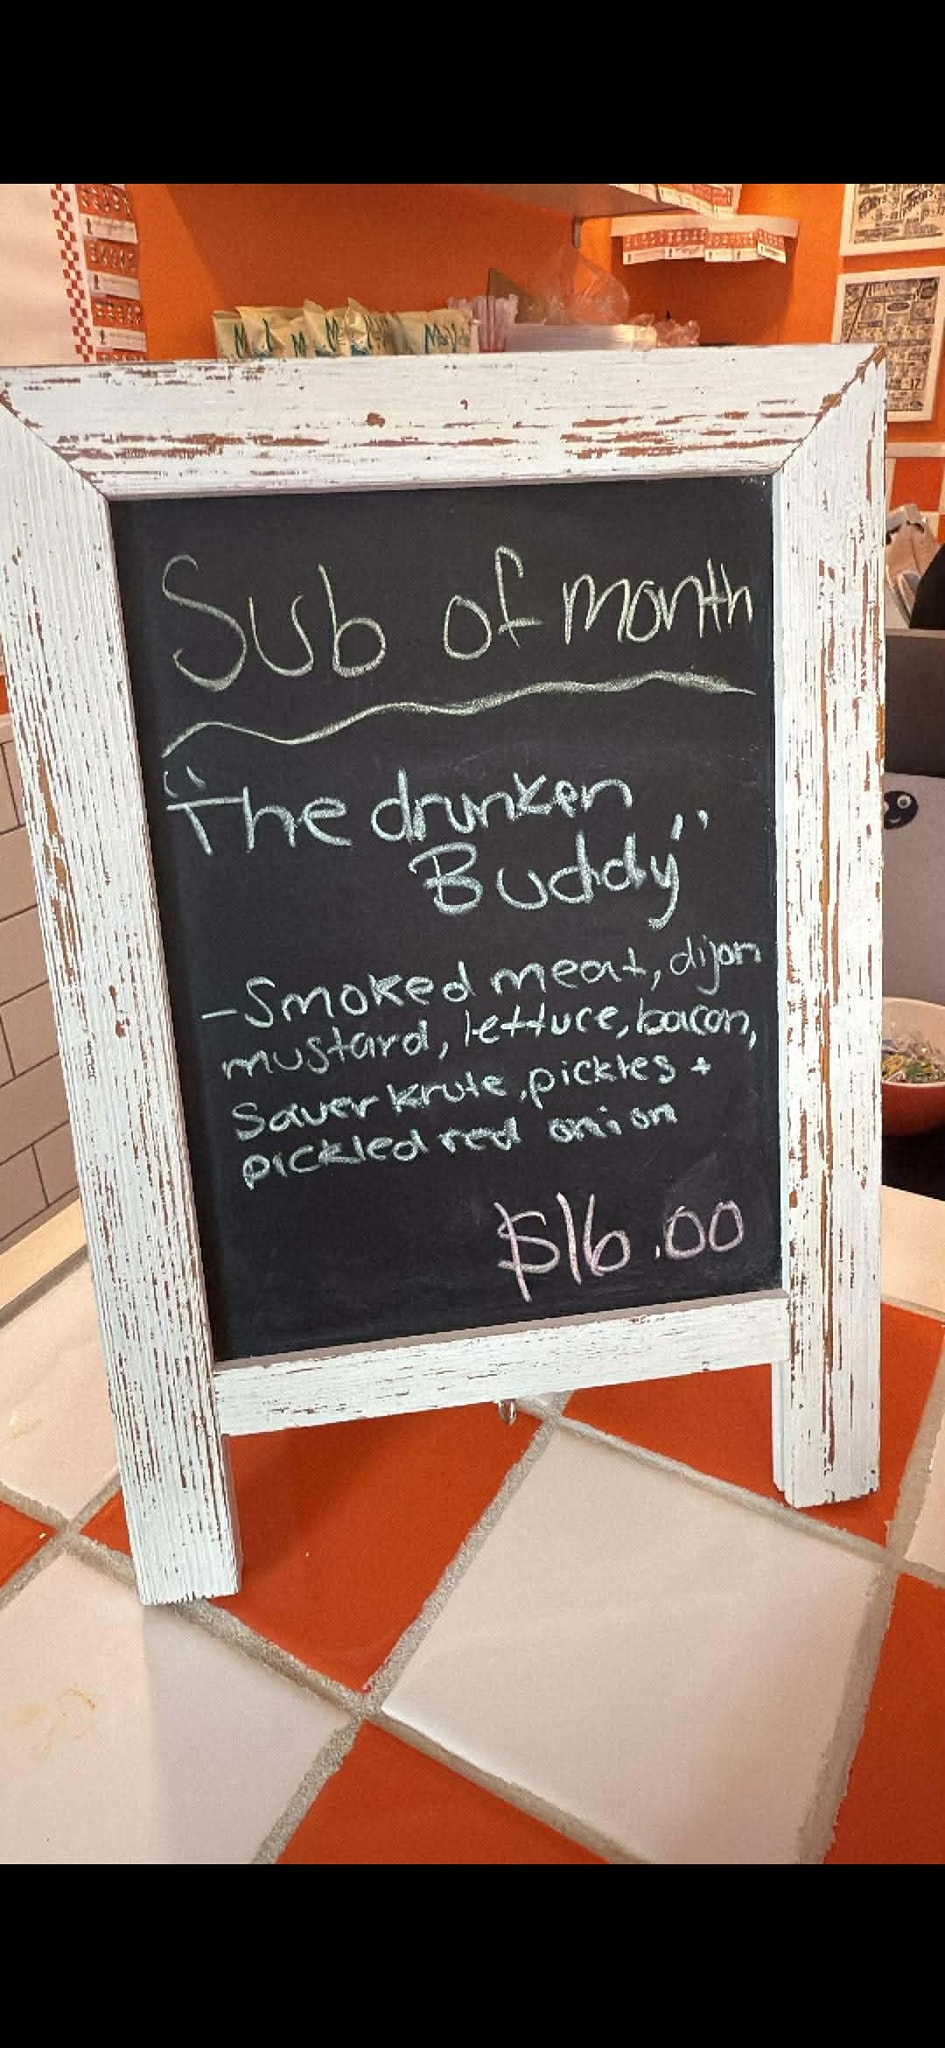 Sub of month
"The drunken
Buddy"
-Smoked meat, dijon
mustard, lettuce, bacon,
Sauerkrute, pickles +
pickled red onion
$16.00